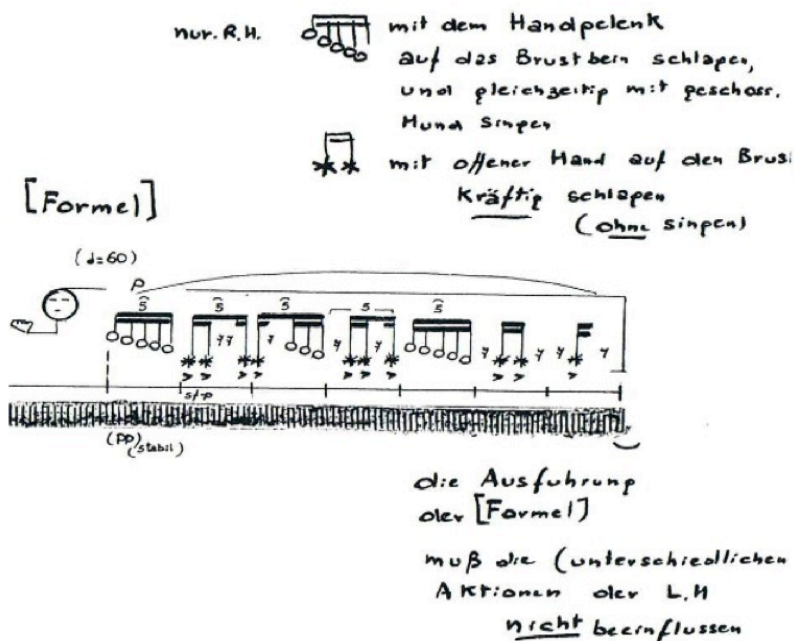 nur. R.H.
mit dem Handgelenk
auf das Brustbein schlagen,
und gleichzeitig mit geschoss.
Mund singen
mit offener Hand auf den Brus
kräftig schlagen
(ohne singen)
[Formel]
(♩=60)
p
5 5 5 5 5
sfp
(pp) (stabil)
die Ausfuhrung
der [Formel]
muß die (unterschiedlichen
Aktionen der L.H
nicht beeinflussen